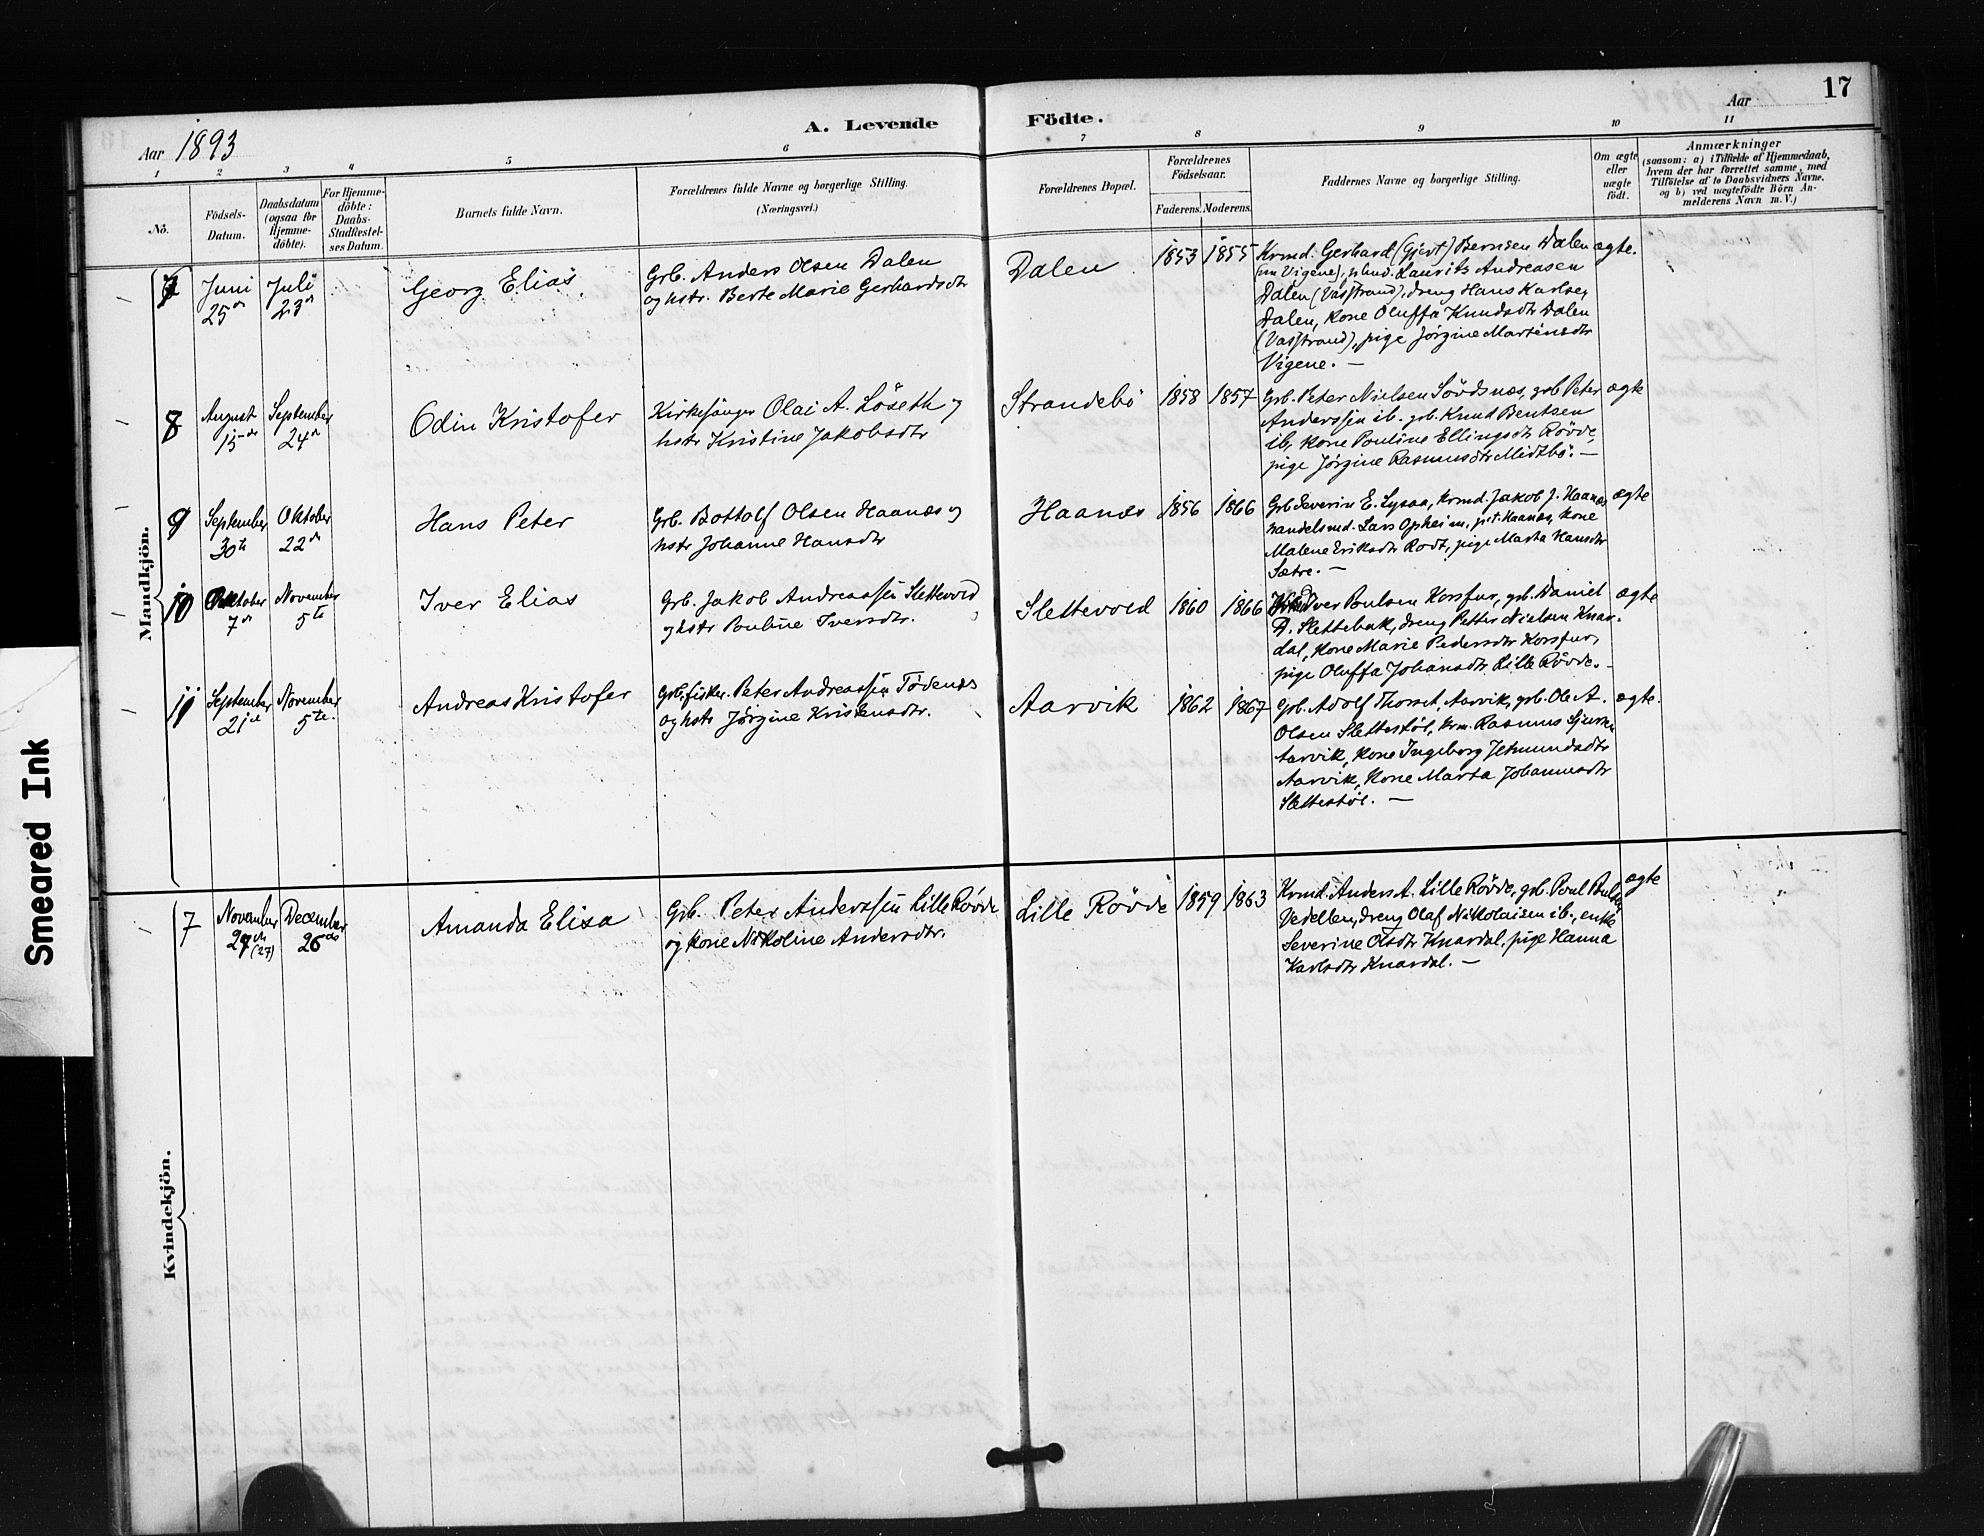 17
Aar 1893
A. Levende Födte.
Aar
1 2 3 4 5 6 7 8 9 10 11
No.
Födsels-
Datum.
Daabsdatum
(ogsaa for
Hjemme-
döbte).
For Hjemme-
döbte:
Daabs-
Stadfæstel-
ses Datum.
Barnets fulde Navn.
Forældrenes fulde Navne og borgerlige Stilling.
(Næringsvei.)
Forældrenes Bopæl.
Forældrenes
Födselsaar.
Faderens.
Moderens.
Faddernes Navne og borgerlige Stilling.
Om ægte
eller
uægte
födt.
Anmærkninger
(saasom: a) i Tilfælde af Hjemmedaab,
hvem der har forrettet samme, med
Tilföielse af to Daabsvidners Navne.
og b) ved uægtefödte Börn An-
melderens Navn m.V.)
Mandkjön.
7
Juni
25de
Juli
23de
Georg Elias
Grb. Anders Olsen Dalen
og hstr. Berte Marie Gerhardsdtr
Dalen
1853
1855
Krmd. Gerhard (Gjert) Bernsen Dalen
Vigene), Laurits Andreasen
Dalen (Vasstrand), dreng Hans Karlsen
Dalen, kone Oluffa Knudsdtr Dalen
(Vasstrand), pige Jörgine Martinsdtr
Vigene. —
ægte.
8
August
15de
September
24de
Odin Kristofer
Kirkesanger Olai A. Löseth og
hstr Kristine Jakobsdtr
Strandebö
1858
1857
Grb. Peter Nielsen Sövdsnæs, grb Peter
Anderssen ib. grb. Knud Bentsen
ib, kone Pouline Ellingsdtr Rövde,
pige Jörgine Rasmusdtr Midtbö. —
ægte
9
September
30te
Oktober
22de
Hans Peter
Grb. Bottolf Olsen Haanæs og
hstr Johanne Hansdtr
Haanæs
1856
1866
Grb Severin E. Lysaa, krmd. Jakob J. Haanæs
handelsmd. Lars Opheim, p.t. Haanæs, kone
Malene Eriksdtr Rodt, pige Marta Hansdtr
Sætre. —
ægte
10
Oktober
7de
November
5te
Iver Elias
Grb. Jakob Andreassen Slettevold
og hstr Pouline Iversdtr.
Slettevold
1860
1866
Iver Poulsen Korsfur, grb. Daniel
D. Slettebak, dreng Petter Nielsen Knar-
dal, kone Marie Pedersdtr Korsfur,
pige Oluffa Johansdtr Lille Rövde. -
ægte
11
September
21de
November
5te.
Andreas Kristofer
Grb. fisker Peter Andreassen Tödenes
og hstr Jörgine Kristensdtr.
Aarvik
1862
1867
Grb. Adolf Thorset, Aarvik, grb. Ole A.
Olsen Slettestöl, krm. Rasmus
Aarvik, kone Ingeborg Jetmundsdtr
Aarvik, kone Marta Johannesdtr
Slettestöl. —
ægte.
Kvindekjön.
7
November
27de (27)
December
26de
Amanda Elisa
Grb. Peter Anderssen Lille Rövde
og kone Nikoline Andersdtr.
Lille Rövde
1859
1863
Krmd. Anders A. Lille Rövde, grb. Poul Poulsen
Vedellen, dreng Olaf Nikolaisen ib., enke
Severine Olsdtr Knardal, pige Hanna
Karlsdtr Knardal. —
ægte
Smeared Ink